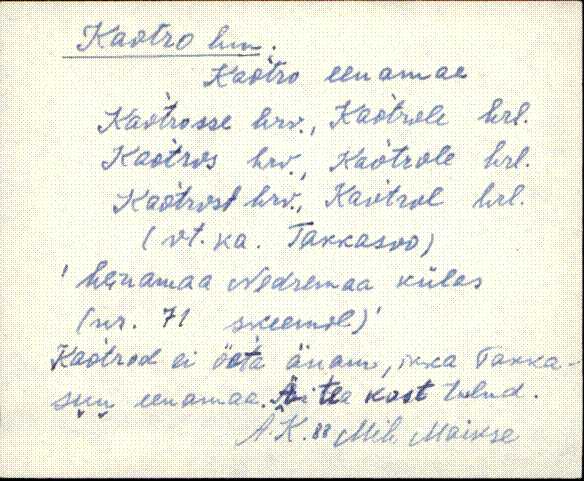 Kaotro hn.
Kaotro eenamae
Kaotrosse hrv., Kaotrole hrl.
Kaotros hrv., Kaotrole hrl.
Kaotrost hrv., Kaotrol hrl.
(vt. ka. Takkasoo)
' heinamaa Nedremaa külas
(nr. 71 skeemil)'
Kaotrod ei öeta änam, ikka Takka-
suu eenamaa. Ai tea kost tulnd.
A.K. 88 Mih. Maikse